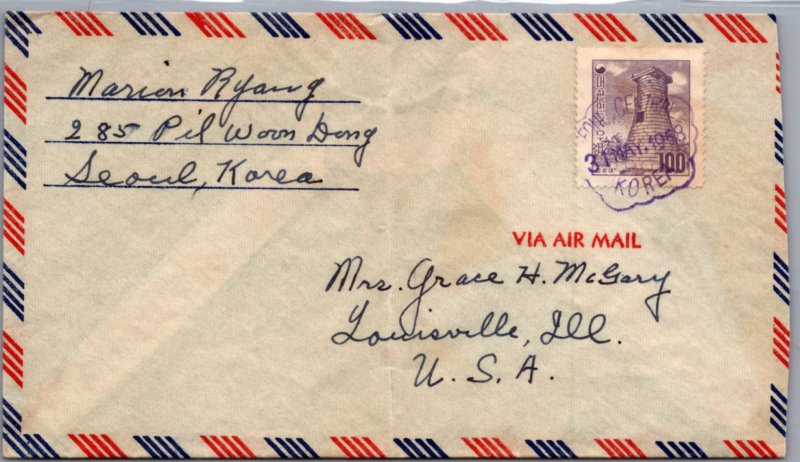 Marion Ryang
285 Pil Woon Dong
Seoul, Korea
100
CENTRAL
31 MAY. 1958
KOREA
VIA AIR MAIL
Mrs. Grace H. McGary
Louisville, Ill.
U. S. A.